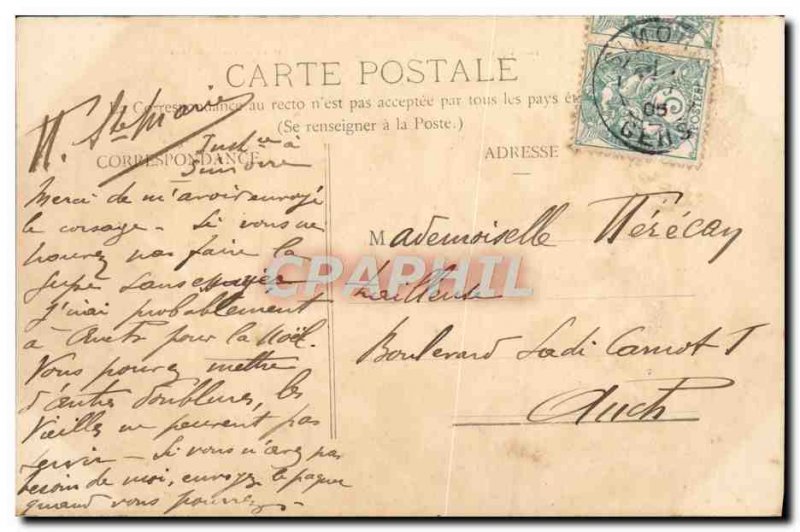 CARTE POSTALE
La Correspondance au recto n'est pas acceptée par tous les pays ét
(Se renseigner à la Poste.)
CORRESPONDANCE
ADRESSE
SIMO
05
GERS
POSTES
Ste Marie
à
Simorre
Merci de m'avoir envoyé
le corsage - Si vous ne
pouvez pas faire la
jupe sans essayer
j'irai probablement
à Auch pour la Noël.
Vous pouvez mettre
d'autres doublures, les
vieilles ne peuvent pas
servir - Si vous n'avez pas
besoin de moi, envoyez le paquet
quand vous pourrez -
Mademoiselle Térécay
tailleuse
Boulevard Sadi Carnot 7
Auch
CPAPHIL